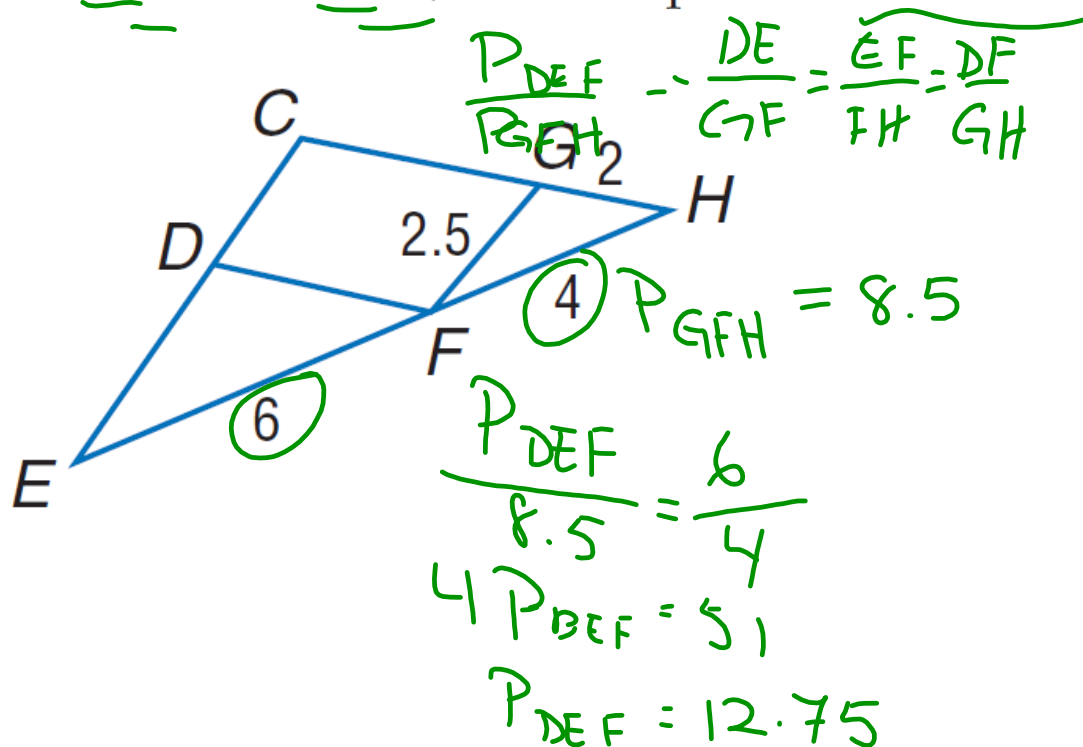 P_DEF / P_GFH = DE / GF = EF / FH = DF / GH
C
G 2
H
D
2.5
4
P_GFH = 8.5
F
6
E
P_DEF / 8.5 = 6 / 4
4 P_DEF = 51
P_DEF = 12.75